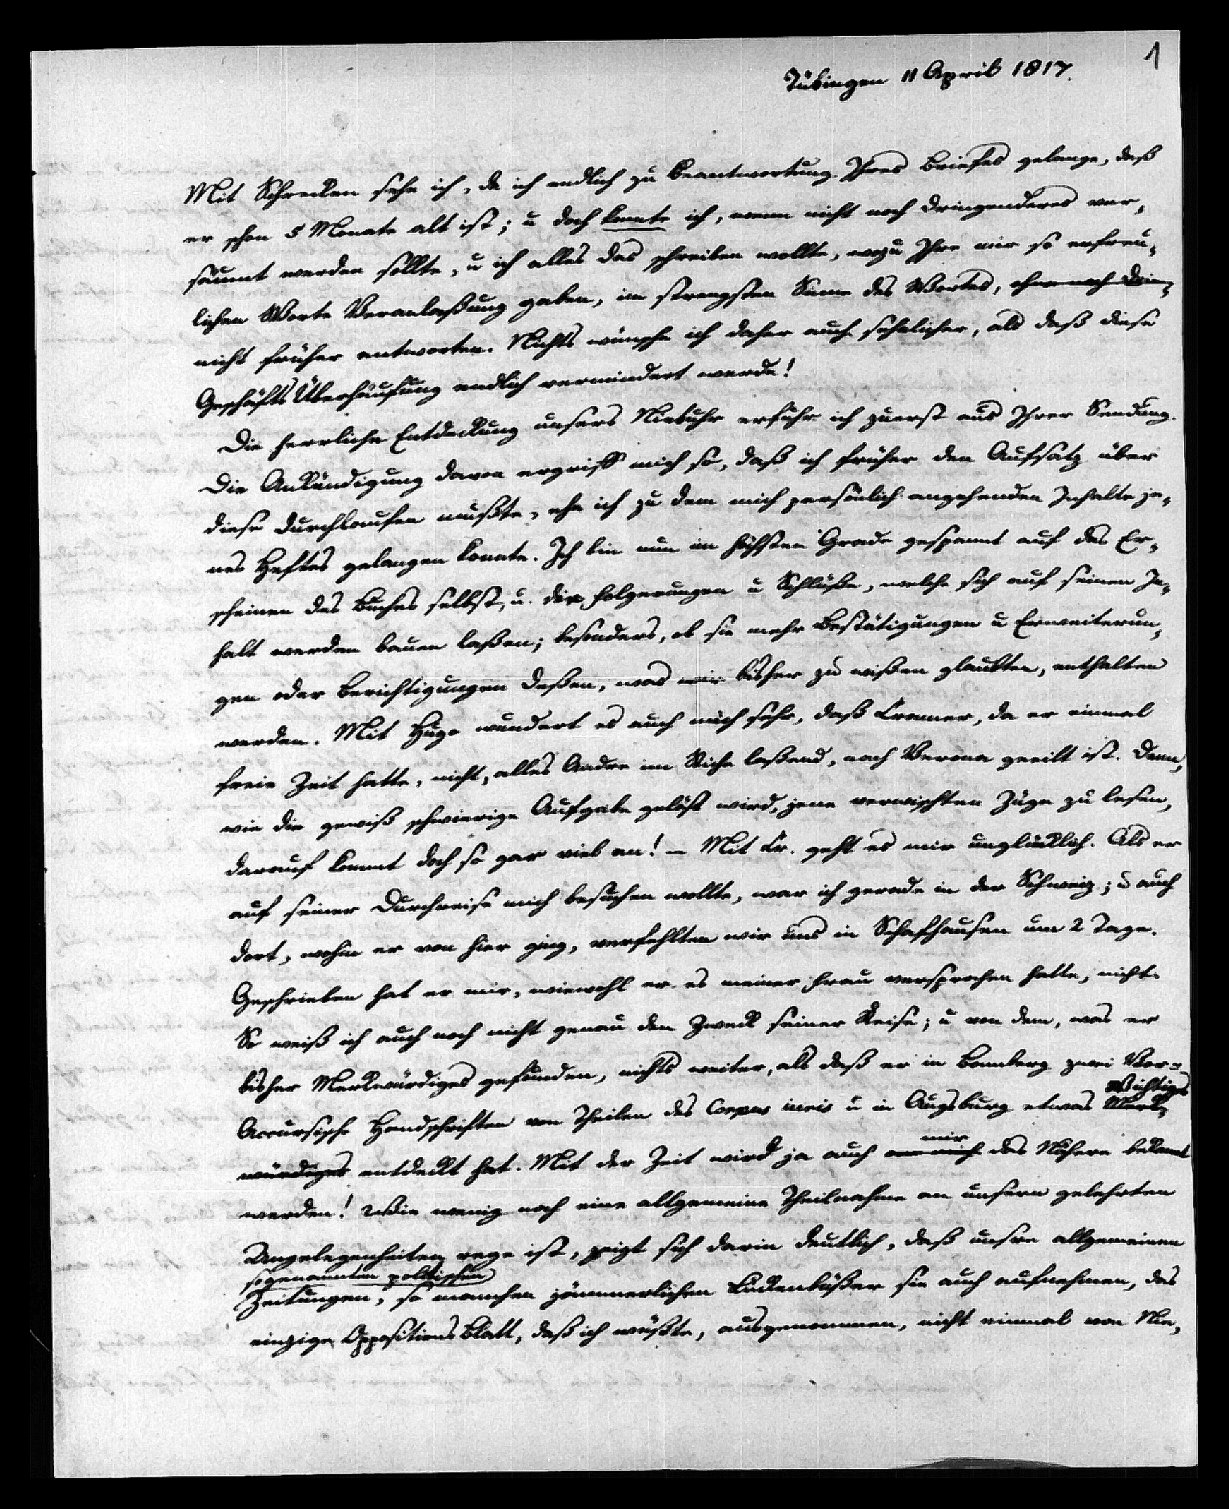 1
Tübingen 11 April 1817.
Mit Schrecken sehe ich, da ich endlich zu Beantwortung Ihres Briefes gelange, daß
er schon 5 Monate alt ist; u doch konnte ich, wenn nicht noch dringenderes ver-
säumt werden sollte, u ich alles das schreiben wollte, wozu Ihre mir so erfreu-
lichen Worte Veranlaßung gaben, im strengsten Sinne des Wortes,
nicht früher antworten. Nichts wünsche ich daher auch sehnlicher, als daß diese
Geschäfts Überhäufung endlich vermindert werde!
Die herrliche Entdeckung unsers Niebuhr erfuhr ich zuerst aus Ihrer Sendung.
Die Ankündigung davon ergriff mich so, daß ich früher den Aufsatz über
diese durchlaufen mußte, ehe ich zu dem mich persönlich angehenden Inhalte je-
nes Heftes gelangen konnte. Ich bin nun im höchsten Grade gespannt auf das Er-
scheinen des Buches selbst, u. die Folgerungen u Schlüße, welche sich auf seinen In-
halt werden bauen laßen; besonders, ob sie mehr Bestätigungen u Erweiterun-
gen oder Berichtigungen deßen, was wir bisher zu wißen glaubten, enthalten
werden. Mit Hugo wundert es auch mich sehr, daß Cramer, da er einmal
freie Zeit hatte, nicht, alles Andre im Stiche laßend, nach Verona geeilt ist. Denn,
wie die gewiß schwierige Aufgabe gelöst wird, jene verwischten Züge zu lesen,
darauf kommt doch so gar viel an! – Mit Cr. geht es mir unglücklich. Als er
auf seiner Durchreise mich besuchen wollte, war ich gerade in der Schweiz; u auch
dort, wohin er von hier ging, verfehlten wir uns in Schafhausen um 2 Tage.
Geschrieben hat er mir, wiewohl er es meiner Frau versprochen hatte, nicht.
So weiß ich auch noch nicht genau den Zweck seiner Reise; u von dem, was er
bisher Merkwürdiges gefunden, nichts weiter, als daß er in Bamberg zwei Vor-
Accursische Handschriften von Theilen des Corpus iuris u in Augsburg etwas Merk- Wichtiges
würdiges entdeckt hat. Mit der Zeit wird ja auch mir das Nähere bekannt
werden! Wie wenig noch eine allgemeine Theilnahme an unsern gelehrten
Angelegenheiten rege ist, zeigt sich darin deutlich, daß unsre allgemeinen
sogenannten politischen
Zeitungen, so manchen jämmerlichen Lückenbüßer sie auch aufnehmen, das
einzige Oppositions Blatt, daß ich wüßte, ausgenommen, nicht einmal von Nie-